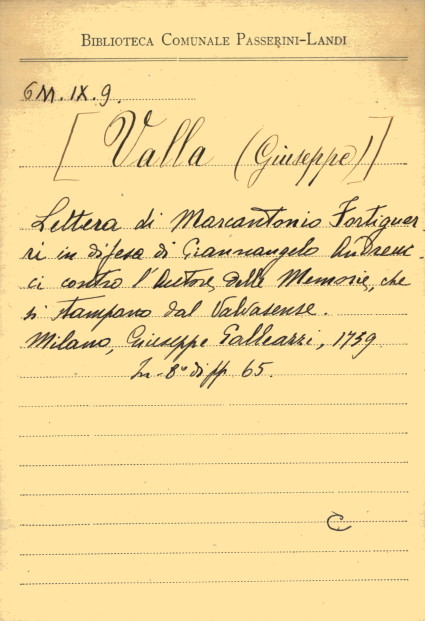 BIBLIOTECA COMUNALE PASSERINI-LANDI
6M. IX. 9.
[Valla (Giuseppe)]
Lettera di Marcantonio Fortiguer-
ri in difesa di Giannangelo Andreuc-
ci contro l'Autore delle Memorie, che
si stampano dal Valvasense.
Milano, Giuseppe Galleazzi, 1759
In-8° di pp. 65.
C